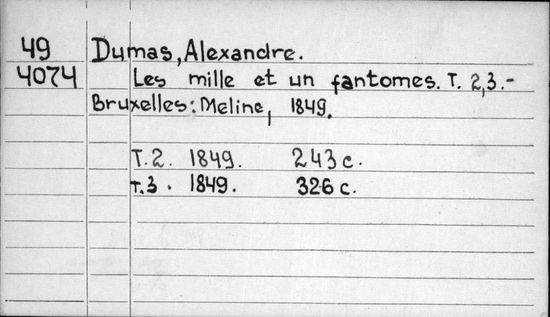 49 Dumas, Alexandre.
4074 Les mille et un fantomes. T. 2,3.-
Bruxelles: Meline, 1849.
T.2. 1849. 243 c.
T.3. 1849. 326 c.